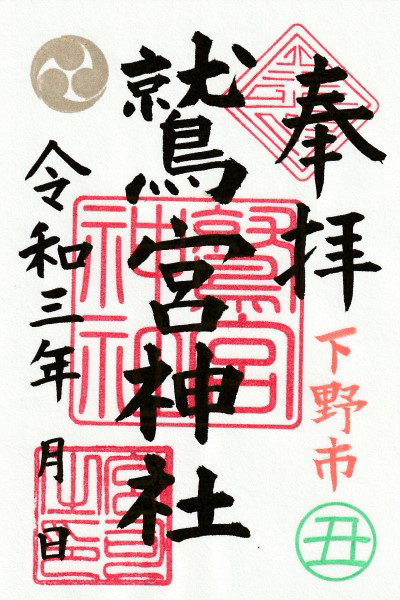 奉拝
下野市
丑
鷲宮神社
令和三年 月 日
鷲宮神社